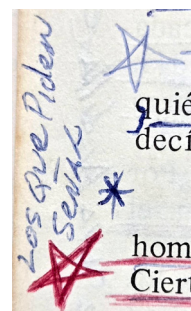 Los Que Piden
Señal
quié
deci
hom
Ciert